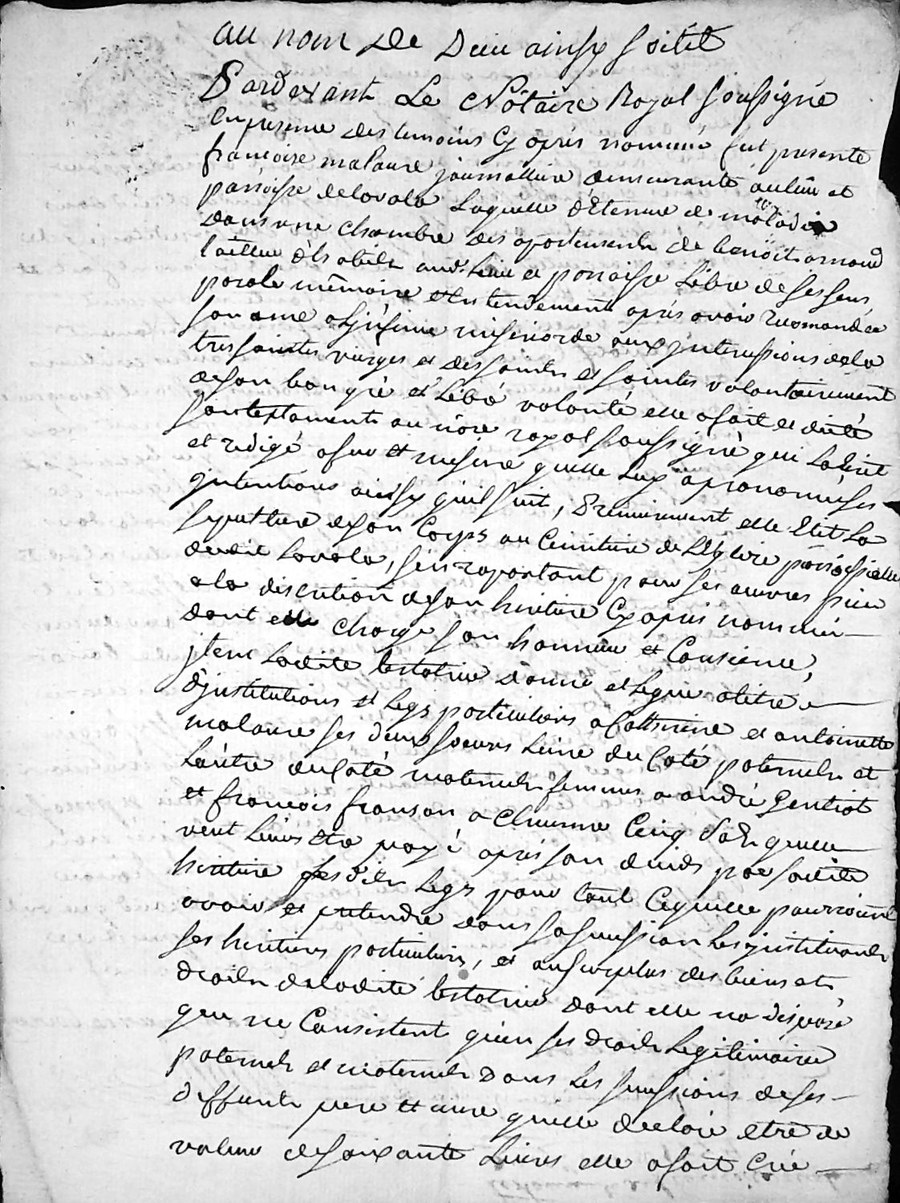 au nom de Dieu ainsy soitil
Pardevant Le Nôtaire Royal soussigné
en presence des temoins cy après nommés fut presente
françoise malaure journalliere demeurante au lieu et
parroisse delavala laquelle détenue de maladie
dans une chambre des apartements de benoit arnaud
tailleur d'habits aud. Lieu et parroisse Libre de ses sens
parole mémoire et entendement après avoir recomandé
son ame a infinie misericorde aux intercessions dela
tres sainte vierge et des saints et saintes volontairement
deson bon gré et Libé volonté elle a fait et dicté
son testament au nôre royal soussigné qui La écrit
et redigé a fur et mesure quelle Luy a prononcé ses
intentions ainsy quil suit, Premierement elle Elit La
sepulture deson Corps au Cimitiere de Léglise parroissialle
dudit Lavala, sen raportant pour ses œuvres pies
ala discretion deson heritiere Cy apres nommée
dont elle charge son honneur et Consience,
jtem Ladite testatrice donne et legue atitre
djnstitutions et Legs particuliers a Catherine et antoinette
malaure ses deux soeurs Lune du Coté paternel et
Lautre du Coté maternel femmes a andré Gentiot
et françois franson a Chacune Cinq sols quelle
veut Leur etre payé apres son deceds par sadite
heritiere lesdits Legs pour tout Cequelle pourroient
avoir et pretendre dans sa succession Les jnstituants
ses heritieres particulieres, et au surplus des biens et
droits deladite testatrice dont elle na disposé
qui ne Consistent quen ses droits Legitimaires
paternels et maternels dans Les successions de ses
deffunts pere et mere quelle declare etre de
valeur desoixante Livres elle afait Créé